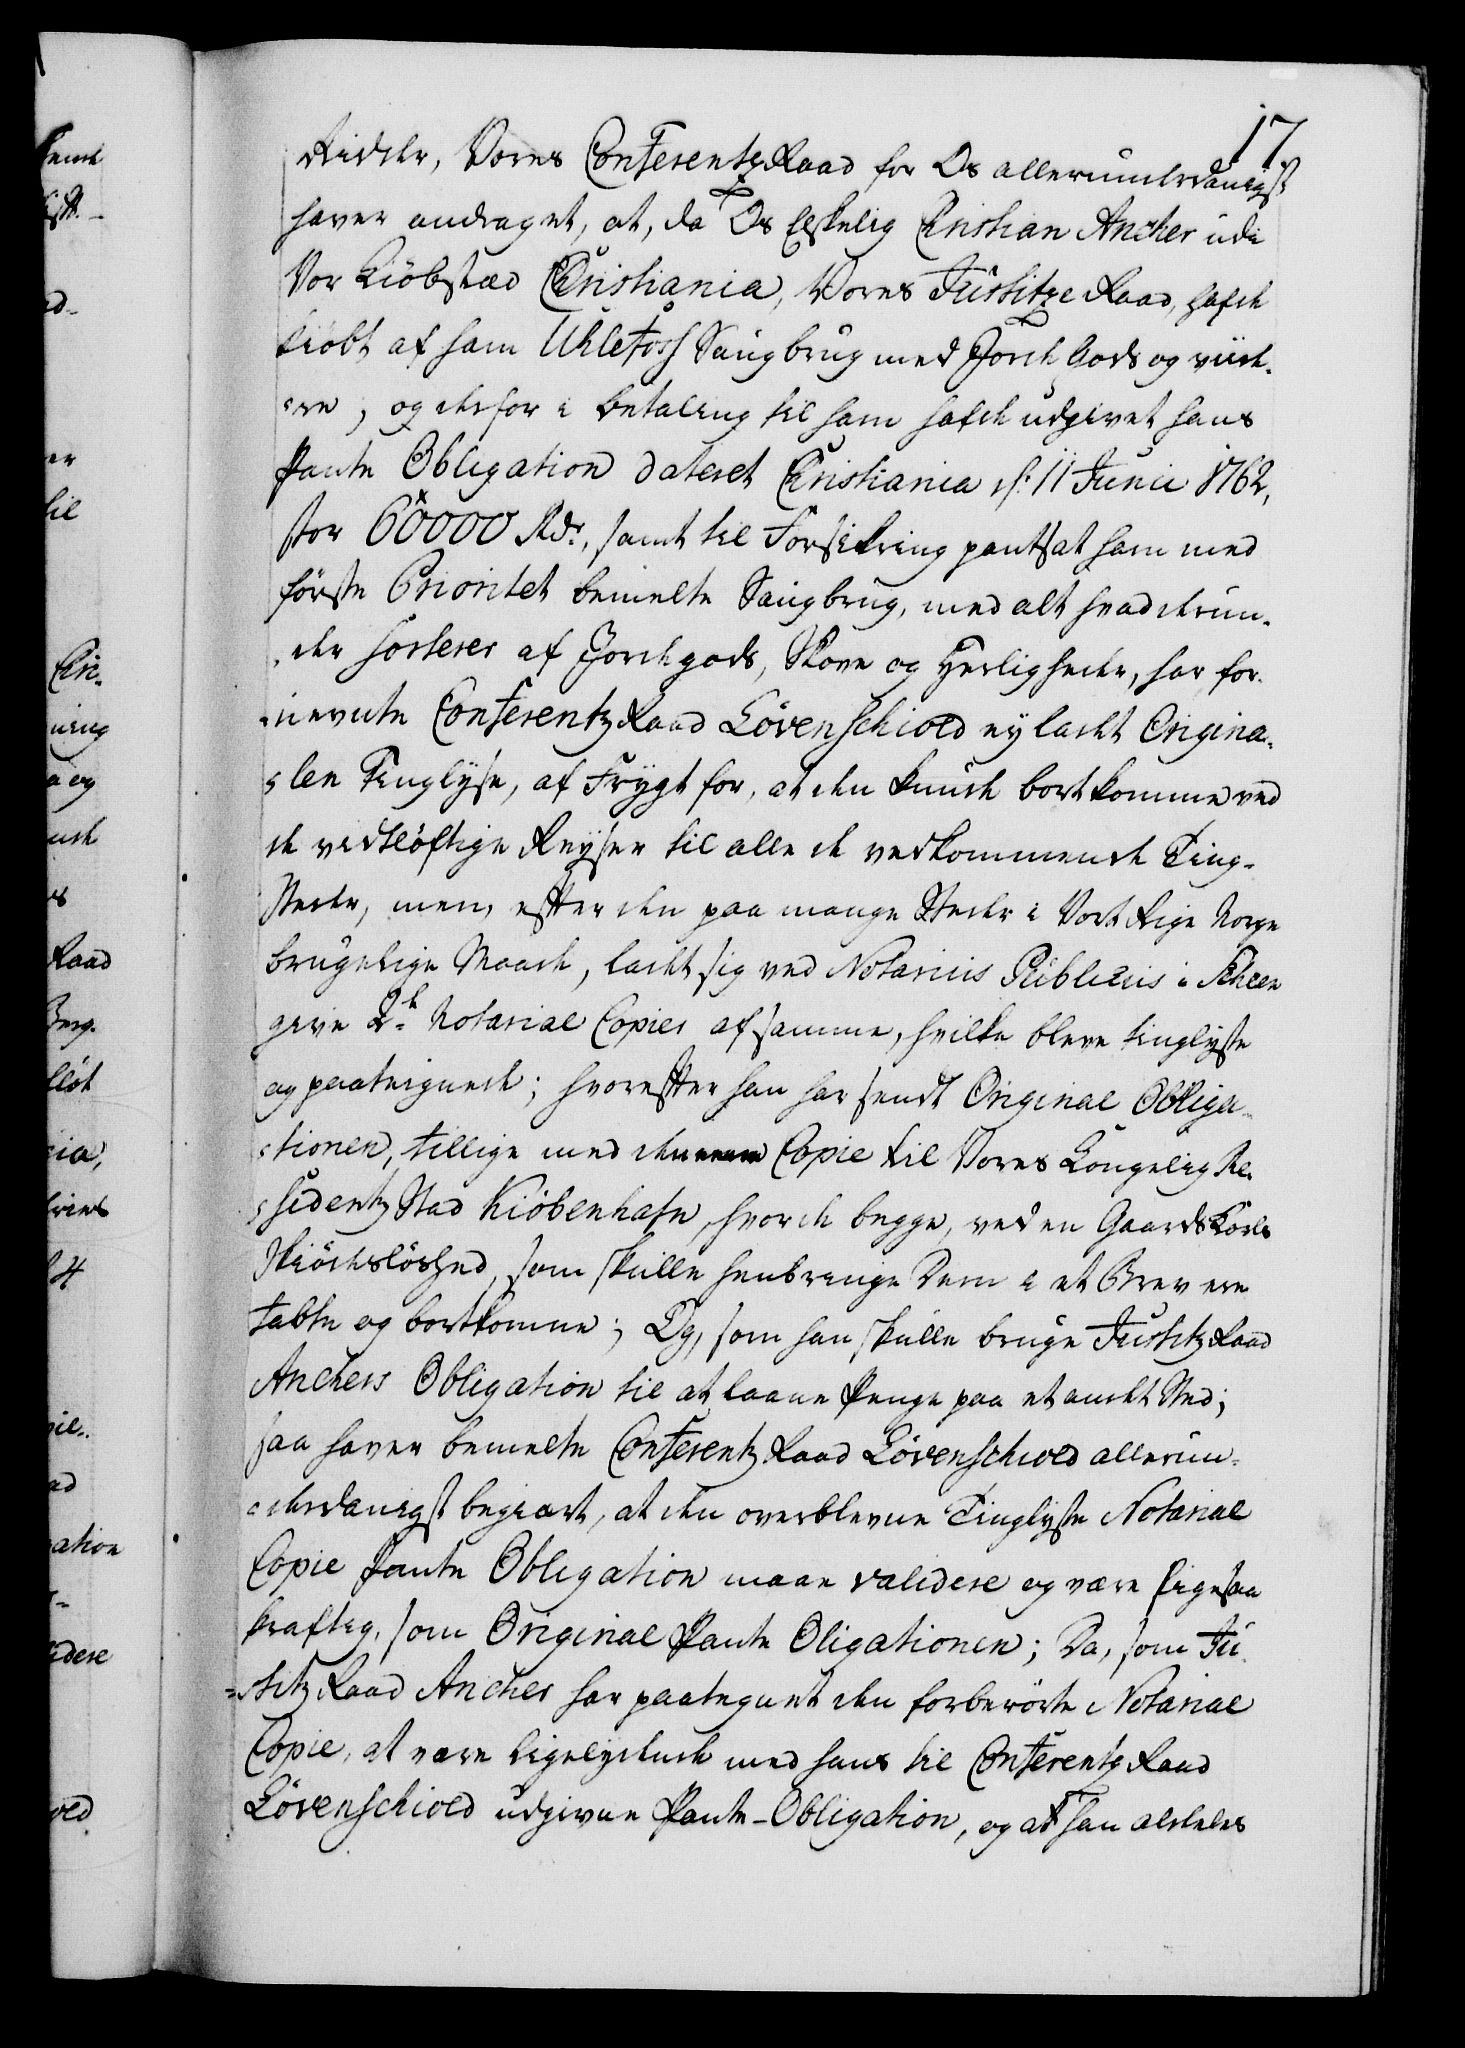 17
Ridder, Vores Conferentz Raad for Os allerunderdanigst
haver andraget, at, da Os Elskelig Christian Ancher udi
Vor Kiöbstæd Christiania, Vores Justitze Raad, hafde
kiöbt af ham Uhlefoss Saugbrug med Jorde Gods og viid-
ere; og derfor i betaling til ham hafde udgivet hans
Pante Obligation dateret Christiania d: 11 Junii 1762,
stor 60000 Rdr, samt til Forsikring pantsat ham med
förste Prioritet bemelte Saugbrug, med alt hvad derun-
-der sorterer af Jordegods, Skove og Herligheder, har for-
-nevnte Conferentz Raad Lövenschiold ey ladet Origina-
-len Tinglyse, af Frygt for, at den kunde bortkomme ved
de vidtlöftige Reyser til alle de vedkommende Ting-
Steder, men, efter den paa mange Steder i Vort Rige Norge
brugelige Maade, ladet sig ved Notarius Publicus i Scheen
give 2de Notarial Copier af samme, hvilke bleve tinglyste
og paategnede; hvorefter han har sendt Original Obliga-
-tionen, tillige med den eene Copie til Vores Kongelig Re-
-sidentz Stad Kiöbenhafn, hvor de begge, ved en Gaards Karls
Skiödeslöshed, som skulle henbringe Dem i et Brev ere
tabte og bortkomne; Og, som han skulle bruge Justitz Raad
Anchers Obligation til at laane Penge paa et andet Sted;
saa haver bemelte Conferentz Raad Lövenschiold allerun-
-derdanigst begiært, at den overblevne Tinglyste Notarial
Copie Pante Obligation maae validere og være ligesaa
kraftig, som Original Pante Oligationen; Da, som Ju-
-stitz Raad Ancher har paategnet den forberörte Notarial
Copie, at være ligelydende med hans til Conferentz Raad
Lövenschiold udgivne Pante-Obligation, og at han aldeles